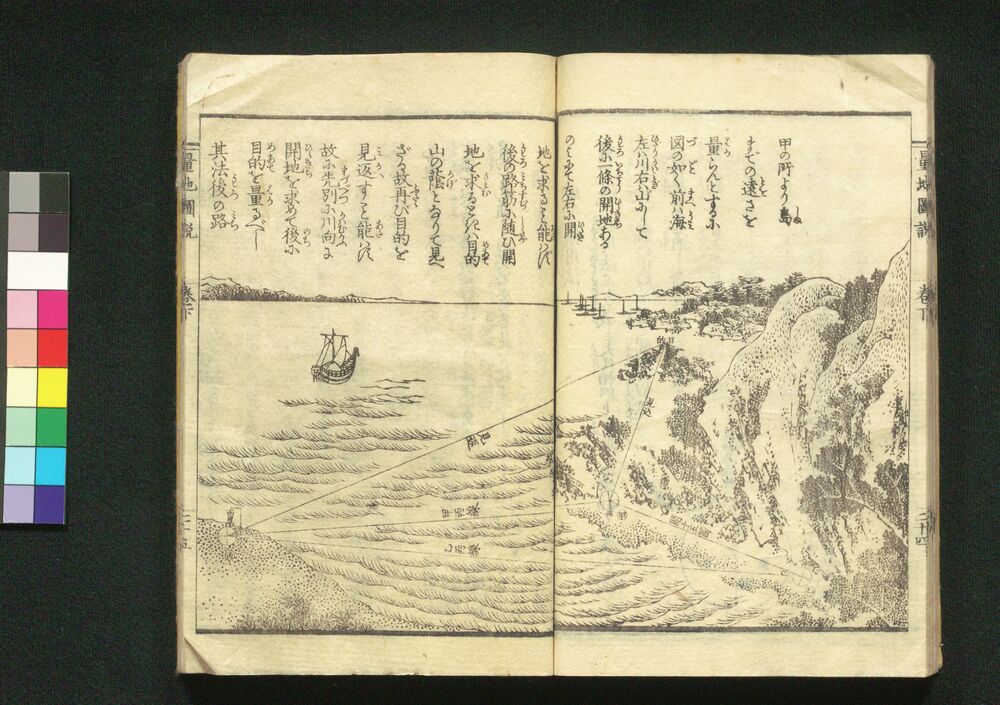 甲の所より島
までの遠さを
量らんとするに
図の如く前ハ海
左ハ川右ハ山にして
後に一條の開地ある
のミにて左右に開
地を求ること能ハず
後の路筋に随ひ開
地を求るときハ目的
山の蔭となりて見へ
ざる故再び目的を
見返すこと能ハず
故に先別に川向に
開地を求めて後に
目的を量るべし
其法後の路
量地圖説
巻下
二十四
量地圖説
巻下
見込
見込
甲丙象
乙丙象